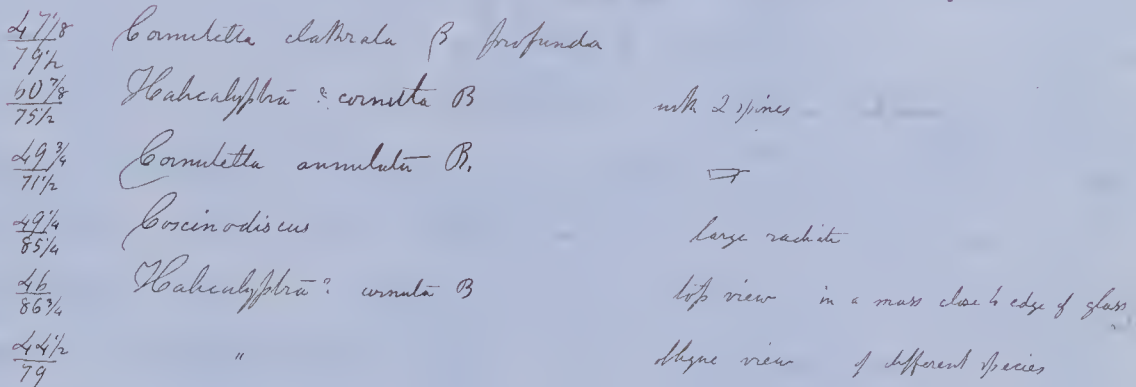 47 1/8 / 79 1/2 Cornutella clathrata β profunda
60 7/8 / 75 1/2 Halicalyptra ? cornuta B with 2 spines
49 3/4 / 71 1/2 Cornutella annulata B.
49 1/4 / 85 1/4 Coscinodiscus large radiate
46 / 86 3/4 Halicalyptra ? cornuta B top view in a mass close to edge of glass
44 1/2 / 79 " oblique view of different species